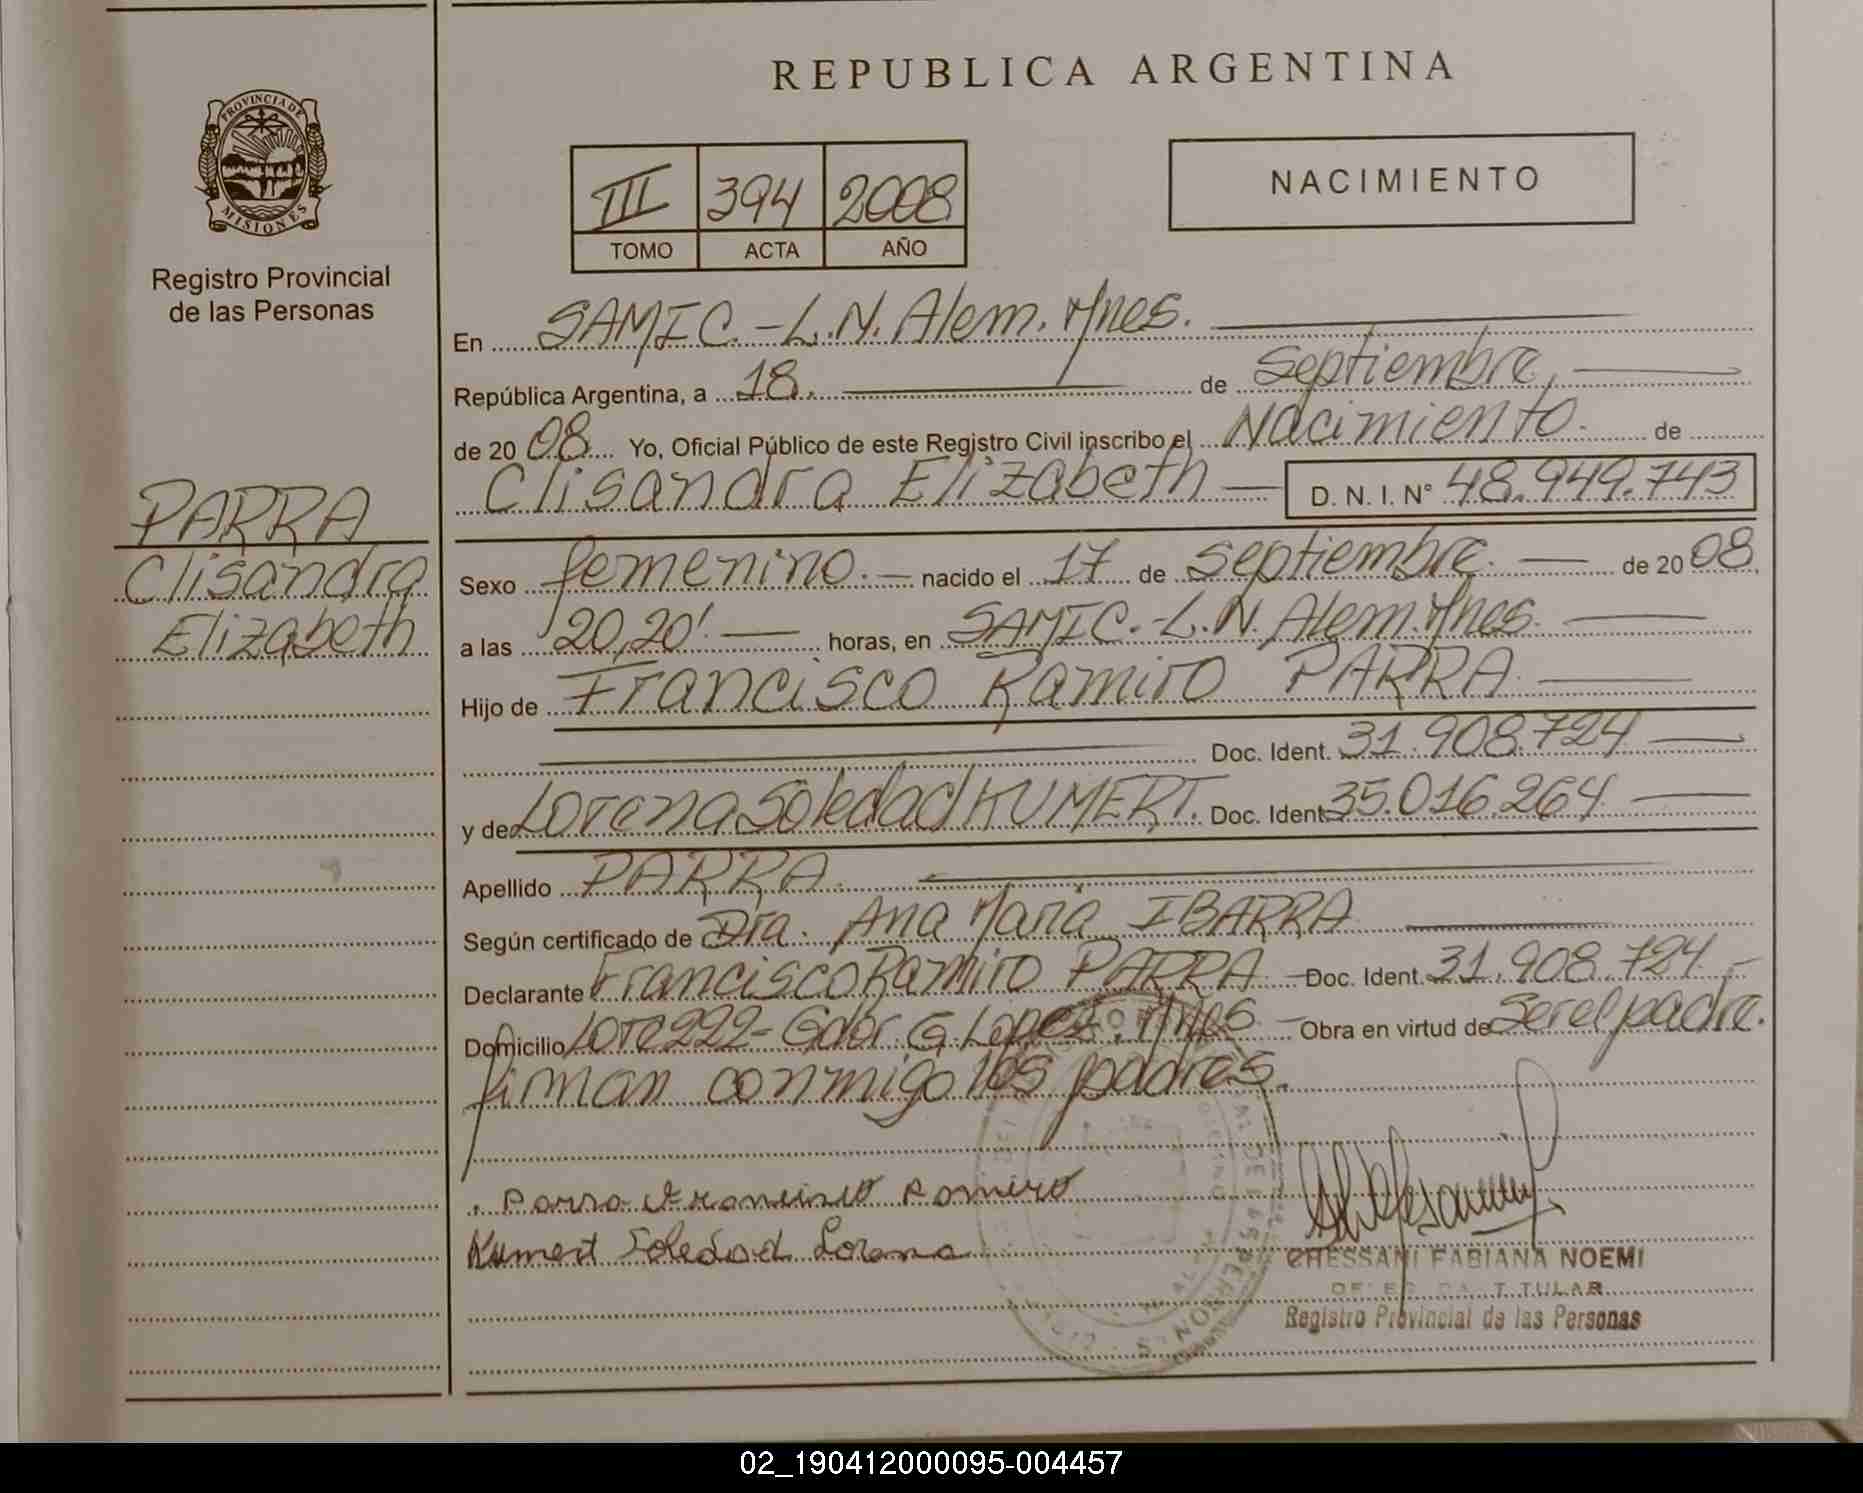 REPUBLICA ARGENTINA
PROVINCIA DE
MISIONES
Registro Provincial
de las Personas
III 394 2008
TOMO ACTA AÑO
NACIMIENTO
En SAMIC.-L.N. Alem. Mnes.
República Argentina, a 18. de Septiembre,
de 20 08 Yo, Oficial Público de este Registro Civil inscribo el Nacimiento. de
Clisandra Elizabeth D. N. I. N° 48.949.743
PARRA
Clisandra
Elizabeth
Sexo femenino. nacido el 17 de septiembre. de 20 08
a las 20,20' horas, en SAMIC.-L.N. Alem. Mnes.
Hijo de Francisco Ramiro PARRA
Doc. Ident. 31.908.724
y de Lorena Soledad KUMERT. Doc. Ident 35.016.264
Apellido PARRA.
Según certificado de Dra. Ana María IBARRA
Declarante Francisco Ramiro PARRA Doc. Ident. 31.908.724
Domicilio Lote 222- Gdor. G. Lopez. Mnes. Obra en virtud de Ser el padre.
firman conmigo los padres.
Parra Francisco Ramiro
Kumert Soledad Lorena
CHESSANI FABIANA NOEMI
Registro Provincial de las Personas
02_190412000095-004457